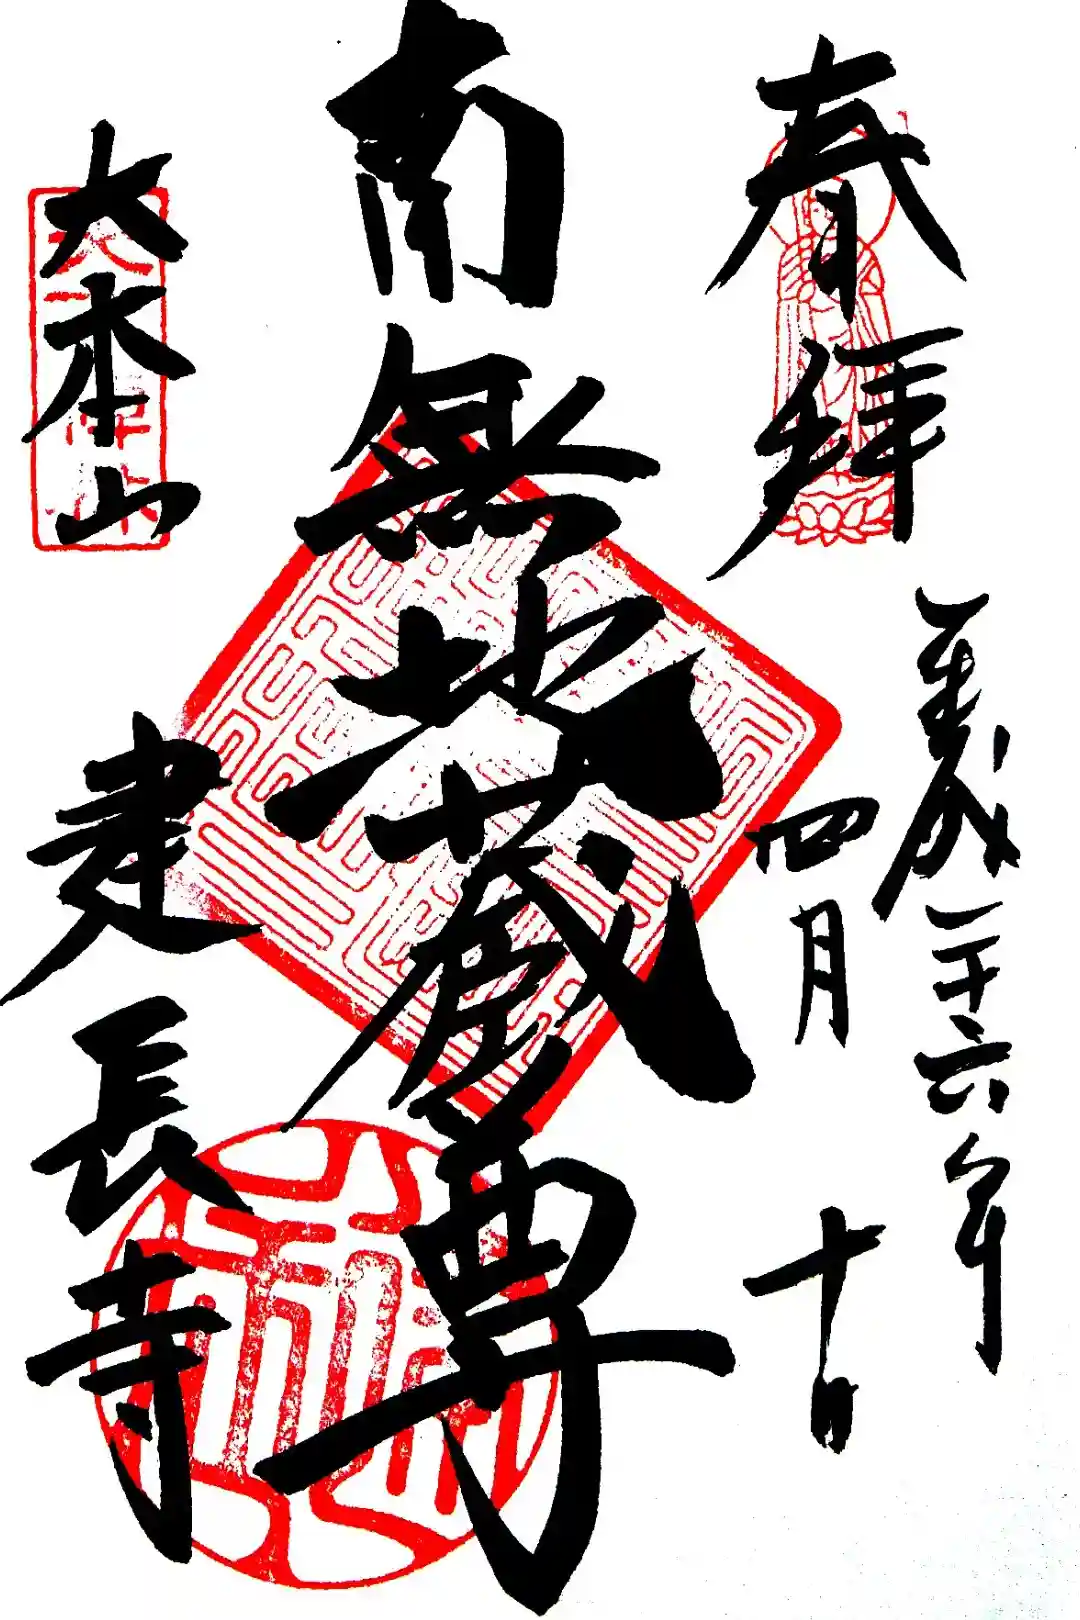 奉拝
平成二十六年
四月
十日
南無地蔵尊
大本山
建長寺